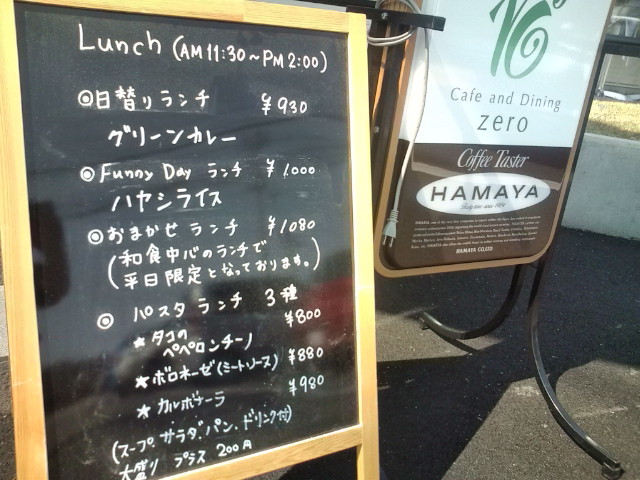 Lunch (AM 11:30～PM 2:00)
◎日替りランチ ¥930
グリーンカレー
◎Funny Day ランチ ¥1,000
ハヤシライス
◎おまかせ ランチ ¥1080
(和食中心のランチで
平日限定となっております。)
◎ パスタ ランチ 3種
★タコの ¥800
ペペロンチーノ
★ボロネーゼ(ミートソース) ¥880
★カルボナーラ ¥980
(スープ、サラダ、パン、ドリンク付)
大盛り プラス 200円
Cafe and Dining
zero
Coffee Taster
HAMAYA
HAMAYA CO,LTD